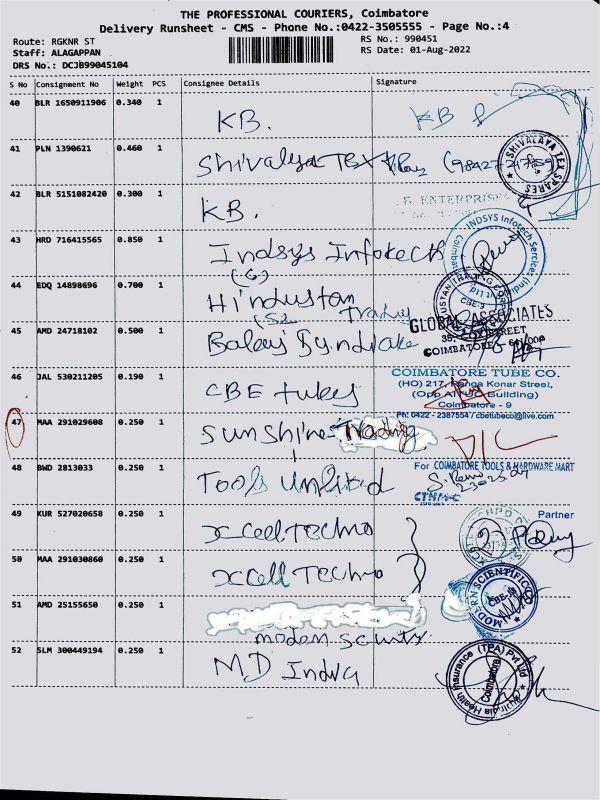 THE PROFESSIONAL COURIERS, Coimbatore
Delivery Runsheet - CMS - Phone No.:0422-3505555 - Page No.:4
Route: RGKNR ST
RS No.: 990451
Staff: ALAGAPPAN
RS Date: 01-Aug-2022
DRS No.: DCJB99045104
S No Consignment No Weight PCS Consignee Details Signature
40 BLR 1650911906 0.340 1 KB. KB
41 PLN 1390621 0.460 1 Shivalya TEX SHIVALAYA TEX SPARES
42 BLR 5151082420 0.300 1 KB. ENTERPRISES
43 HRD 716415565 0.850 1 Indsys Infotech INDSYS Infotech Services (India) Coimbatore
(6)
44 EDQ 14898696 0.700 1 Hindustan Trading CBE-9
GLOBAL ASSOCIATES
45 AMD 24718102 0.500 1 Balaji Syndicate
COIMBATORE - 641009
46 JAL 530211205 0.190 1 CBE tubes COIMBATORE TUBE CO.
(HO) 217, Ranga Konar Street,
(Opp Building)
Coimbatore - 9
Ph: 0422 - 2387554 / cbetubeco@live.com
47 MAA 291029608 0.250 1 Sunshine Trading
48 BWD 2813033 0.250 1 Tools Unlited For COIMBATORE TOOLS & HARDWARE MART
Partner
49 KUR 527020658 0.250 1 xcell Techno
50 MAA 291030860 0.250 1 xcell Techno
51 AMD 25155650 0.250 1 MODERN SCIENTIFIC CBE-18
modern
52 SLM 300449194 0.250 1 MD India MDIndia Health Insurance (TPA) Pvt Ltd Coimbatore